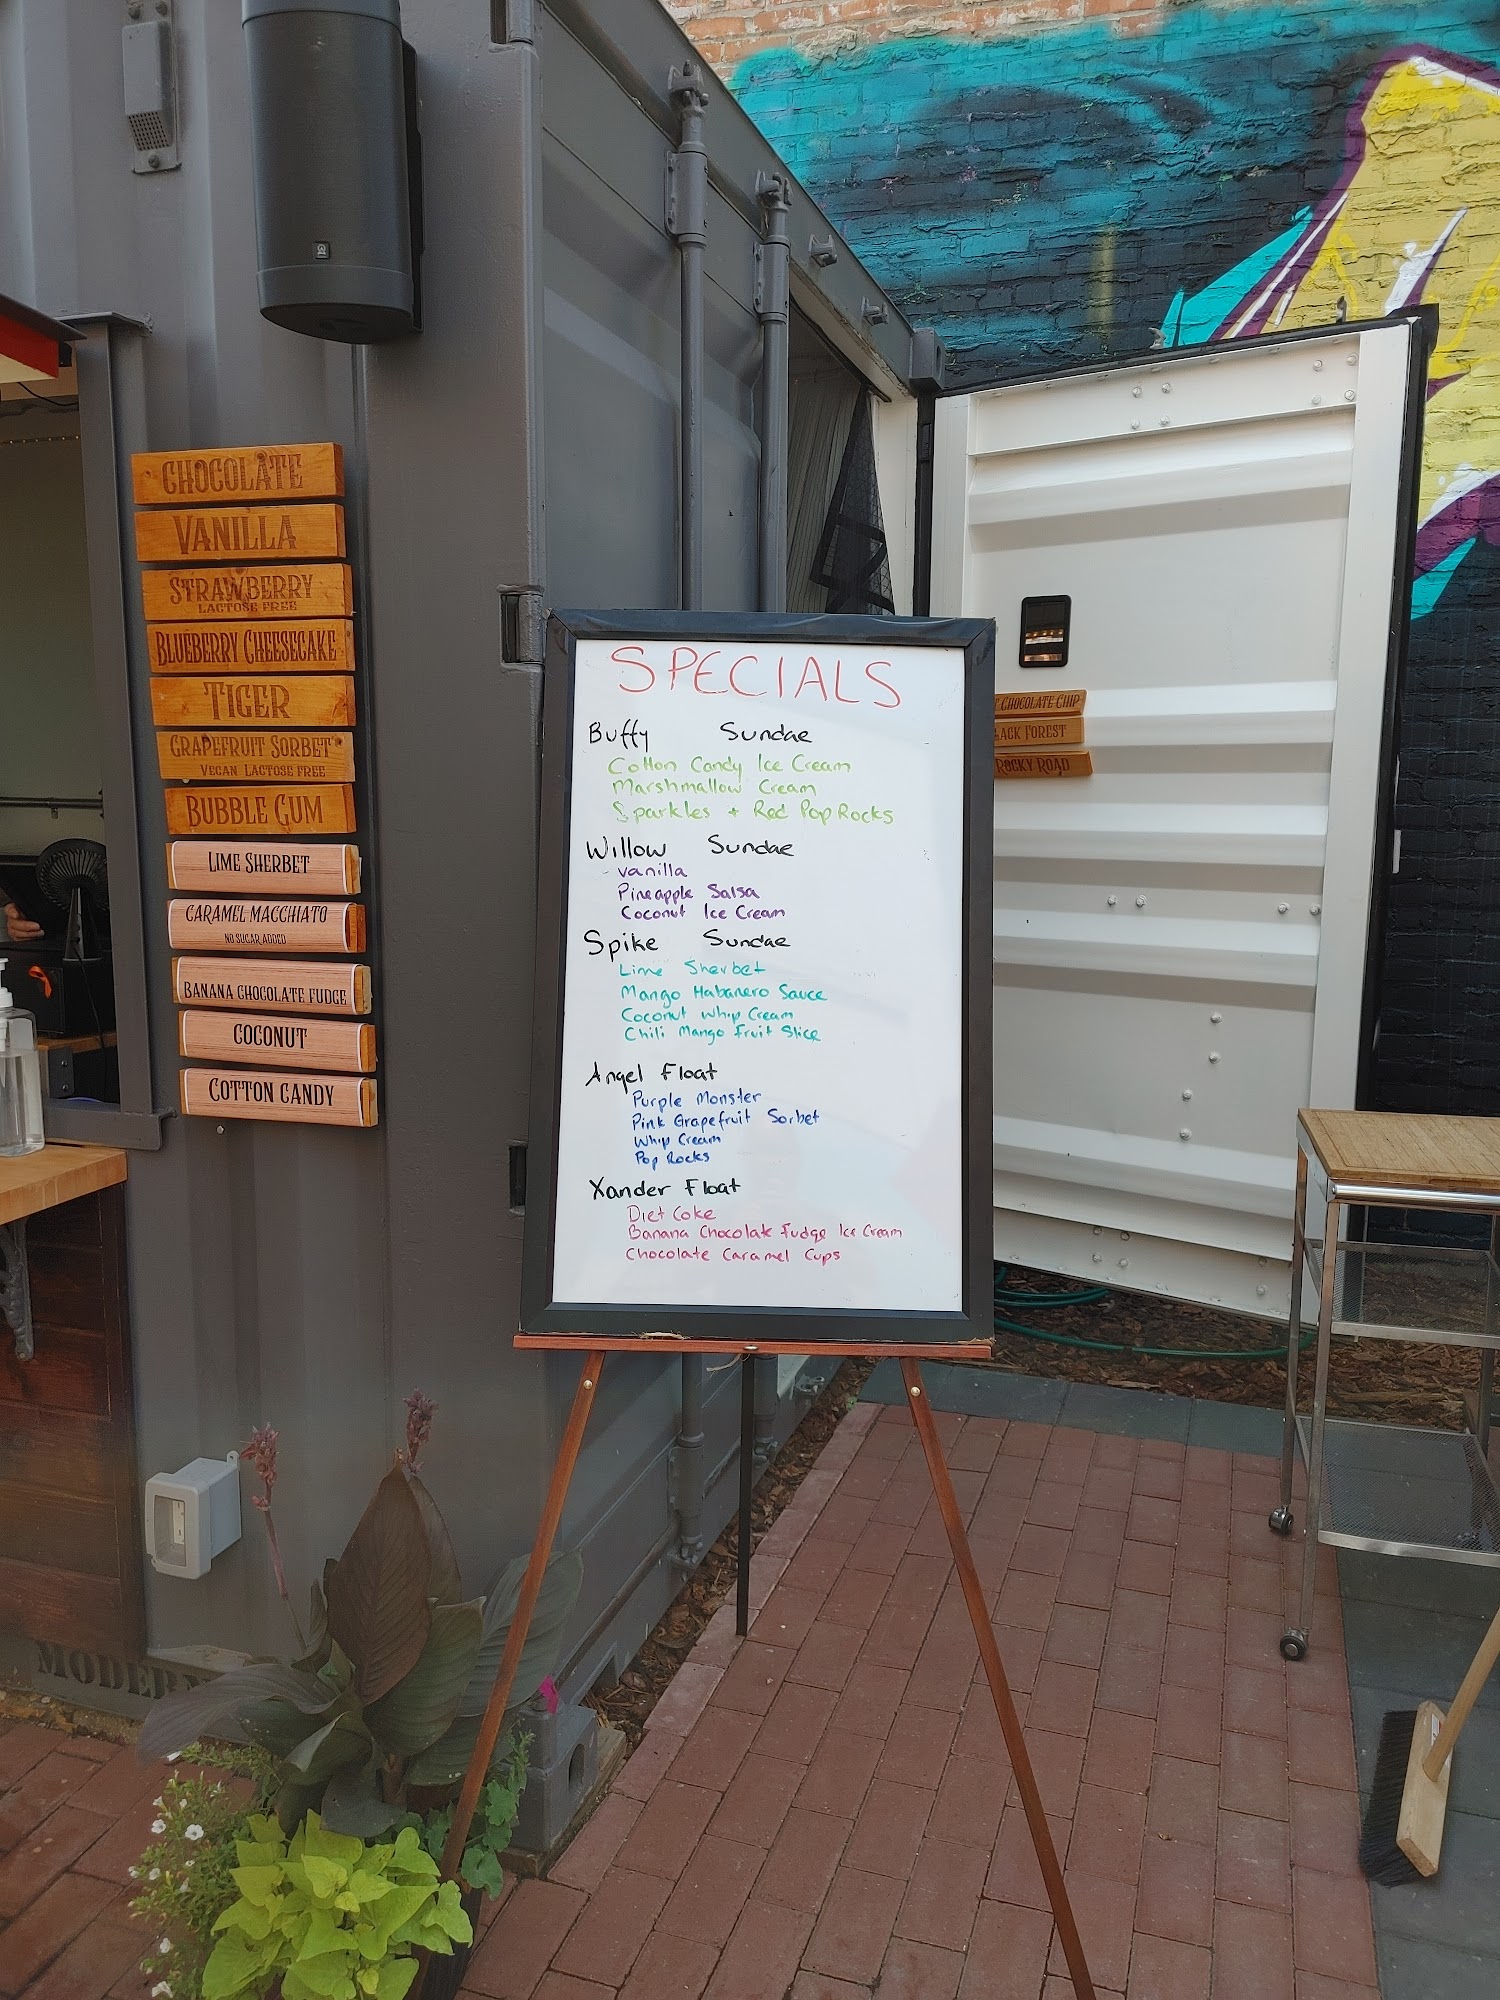 CHOCOLATE
VANILLA
STRAWBERRY
LACTOSE FREE
BLUEBERRY CHEESECAKE
TIGER
GRAPEFRUIT SORBET
VEGAN LACTOSE FREE
BUBBLE GUM
LIME SHERBET
CARAMEL MACCHIATO
NO SUGAR ADDED
BANANA CHOCOLATE FUDGE
COCONUT
COTTON CANDY
SPECIALS
Buffy Sundae
Cotton Candy Ice Cream
Marshmallow Cream
Sparkles + Red Pop Rocks
Willow Sundae
Vanilla
Pineapple Salsa
Coconut Ice Cream
Spike Sundae
Lime Sherbet
Mango Habanero Sauce
Coconut Whip Cream
Chili Mango Fruit Slice
Angel Float
Purple Monster
Pink Grapefruit Sorbet
Whip Cream
Pop Rocks
Xander Float
Diet Coke
Banana Chocolate Fudge Ice Cream
Chocolate Caramel Cups
CHOCOLATE CHIP
FOREST
ROCKY ROAD
MODERN